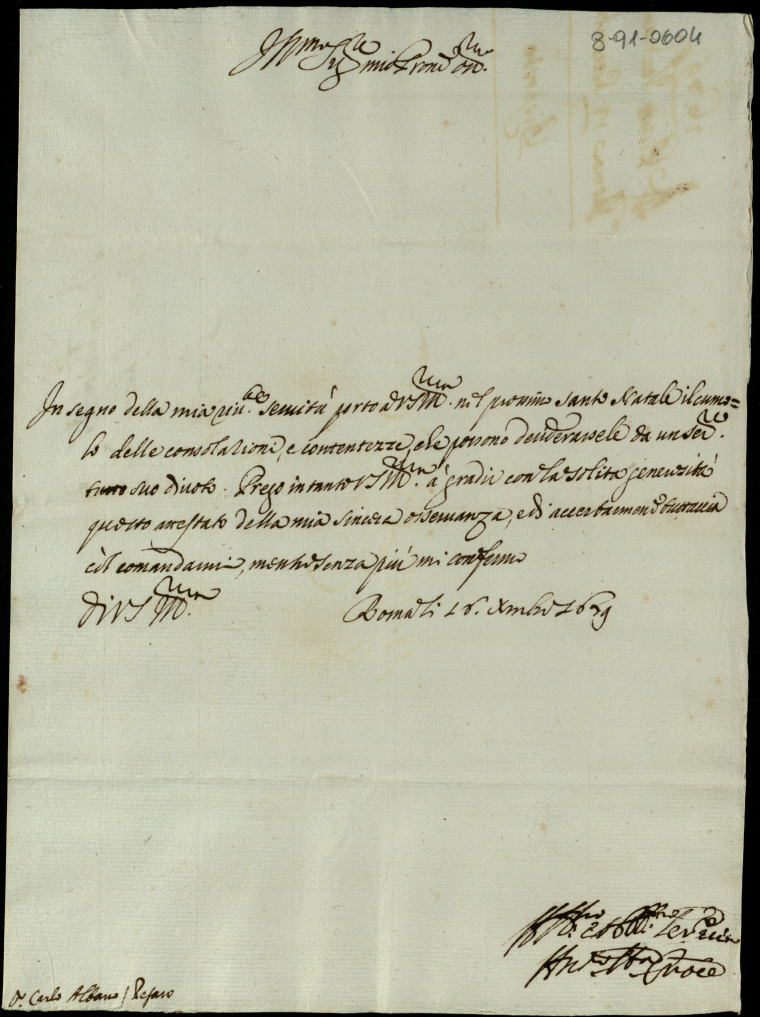 8-91-0604
Ill.mo Sig.re mio P.ron Oss.mo
In segno della mia riu.te seruitù porto à VS Ill.ma nel prossimo santo Natale il cumo=
lo delle consolationi, e contentezze, che possono desiderarsele da un ser.re
tutto suo diuoto. Prego intanto VS Ill.ma à gradir con la solita generosità
questo attestato della mia sincera osseruanza, e di accertarmene tuttauia
co'l comandarmi, mentre senza più mi confermo
Di VS Ill.ma
Roma li 16. Xmbre 1659
Croce
S.r Carlo Albano / Pesaro